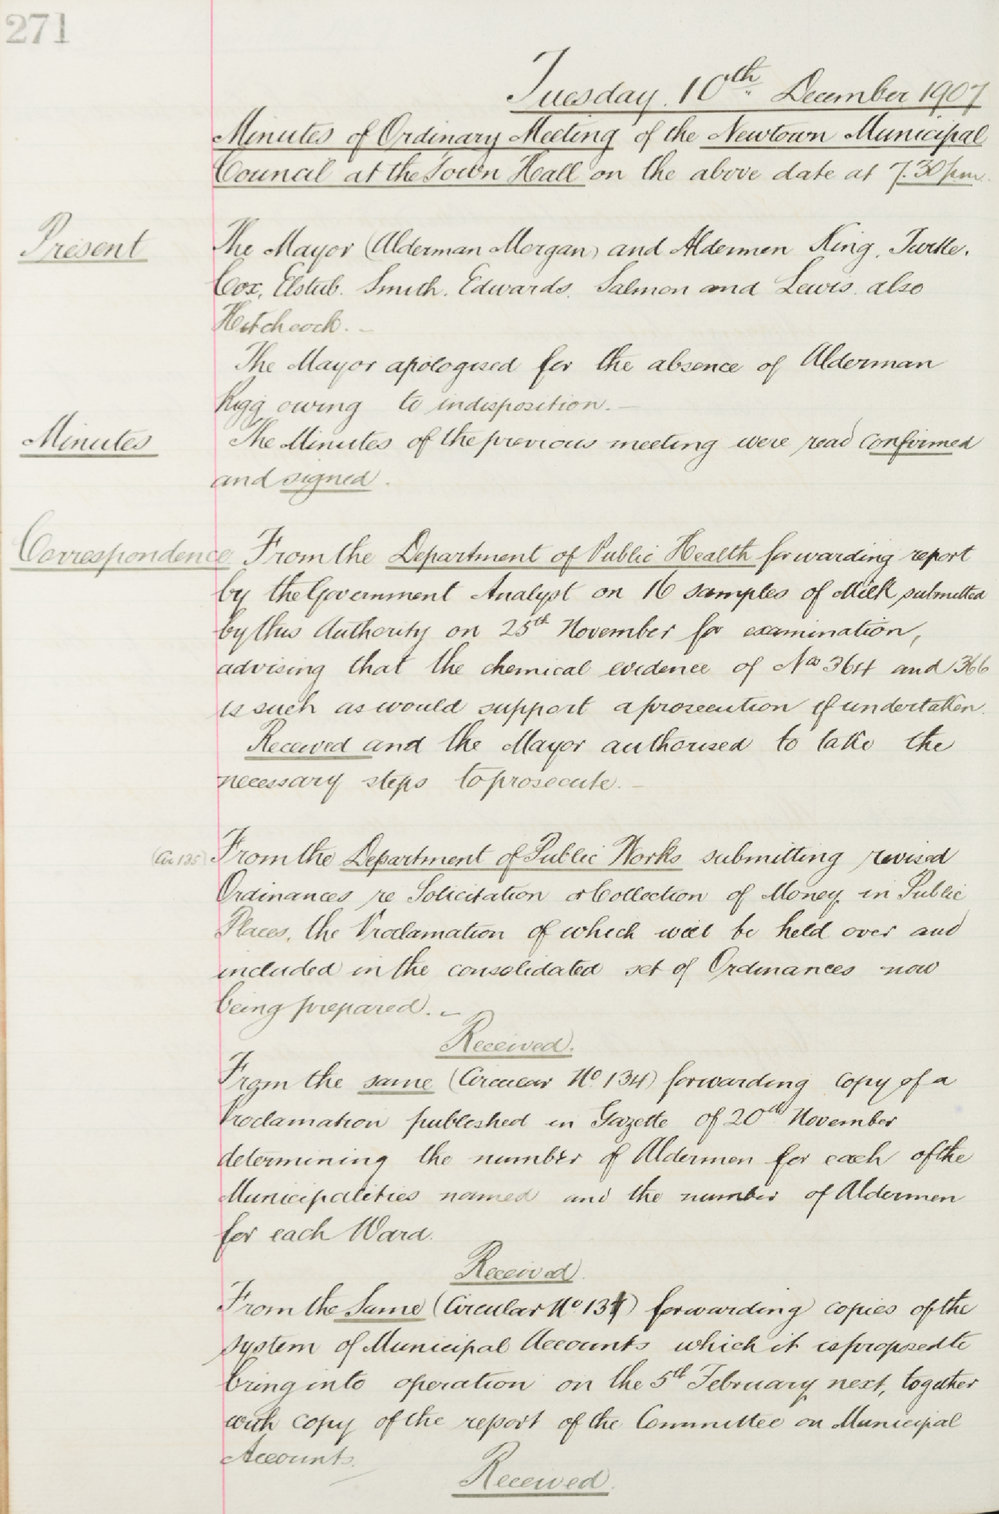 271
Tuesday. 10th December 1907
Minutes of Ordinary Meeting of the Newtown Municipal
Council at the Town Hall on the above date at 7.30 pm.
Present
The Mayor (Alderman Morgan) and Aldermen King, Turtle,
Cox, Elstub. Smith. Edwards. Salmon and Lewis. also
Hitchcock. –
The Mayor apologised for the absence of Alderman
Rigg owing to indisposition. –
Minutes
The Minutes of the previous meeting were read confirmed
and signed.
Correspondence
From the Department of Public Health forwarding report
by the Government Analyst on 16 samples of Milk submitted
by this Authority on 25th November for examination,
advising that the chemical evidence of Nos 364 and 366
is such as would support a prosecution if undertaken.
Received and the Mayor authorised to take the
necessary steps to prosecute. –
(Cir 135)
From the Department of Public Works submitting revised
Ordinances re Solicitation or Collection of Money in Public
Places, the Proclamation of which will be held over and
included in the consolidated set of Ordinances now
being prepared. –
Received.
From the same (Circular No 134) forwarding copy of a
Proclamation published in Gazette of 20th November
determining the number of Aldermen for each of the
Municipalities named and the number of Aldermen
for each Ward.
Received.
From the Same (Circular No 137) forwarding copies of the
system of Municipal Accounts which it is proposed to
bring into operation on the 5th February next, together
with copy of the report of the Committee on Municipal
Accounts.
Received.